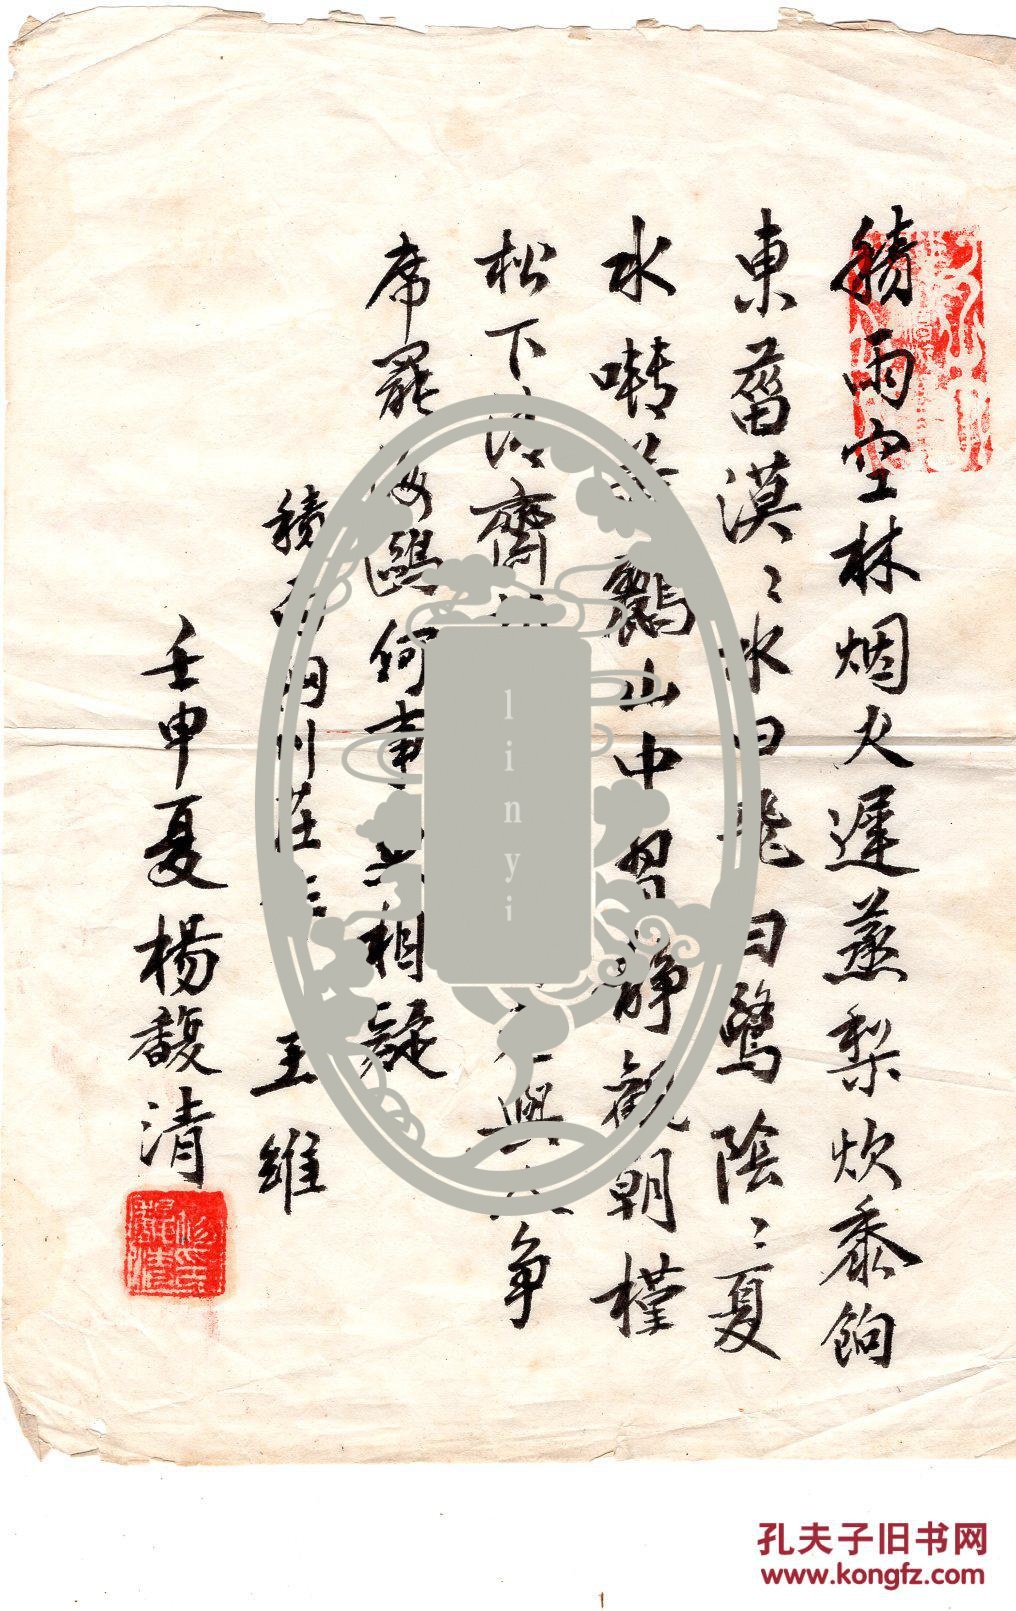 積雨空林烟火遲蒸梨炊黍餉
東菑漠〻水田飛白鷺陰〻夏
木囀黄鸝山中習静觀朝槿
松下清齋 與人争
席罷海鷗何事 相疑
積雨輞川莊作 王維
壬申夏楊馥清
linyi
孔夫子旧书网
www.kongfz.com